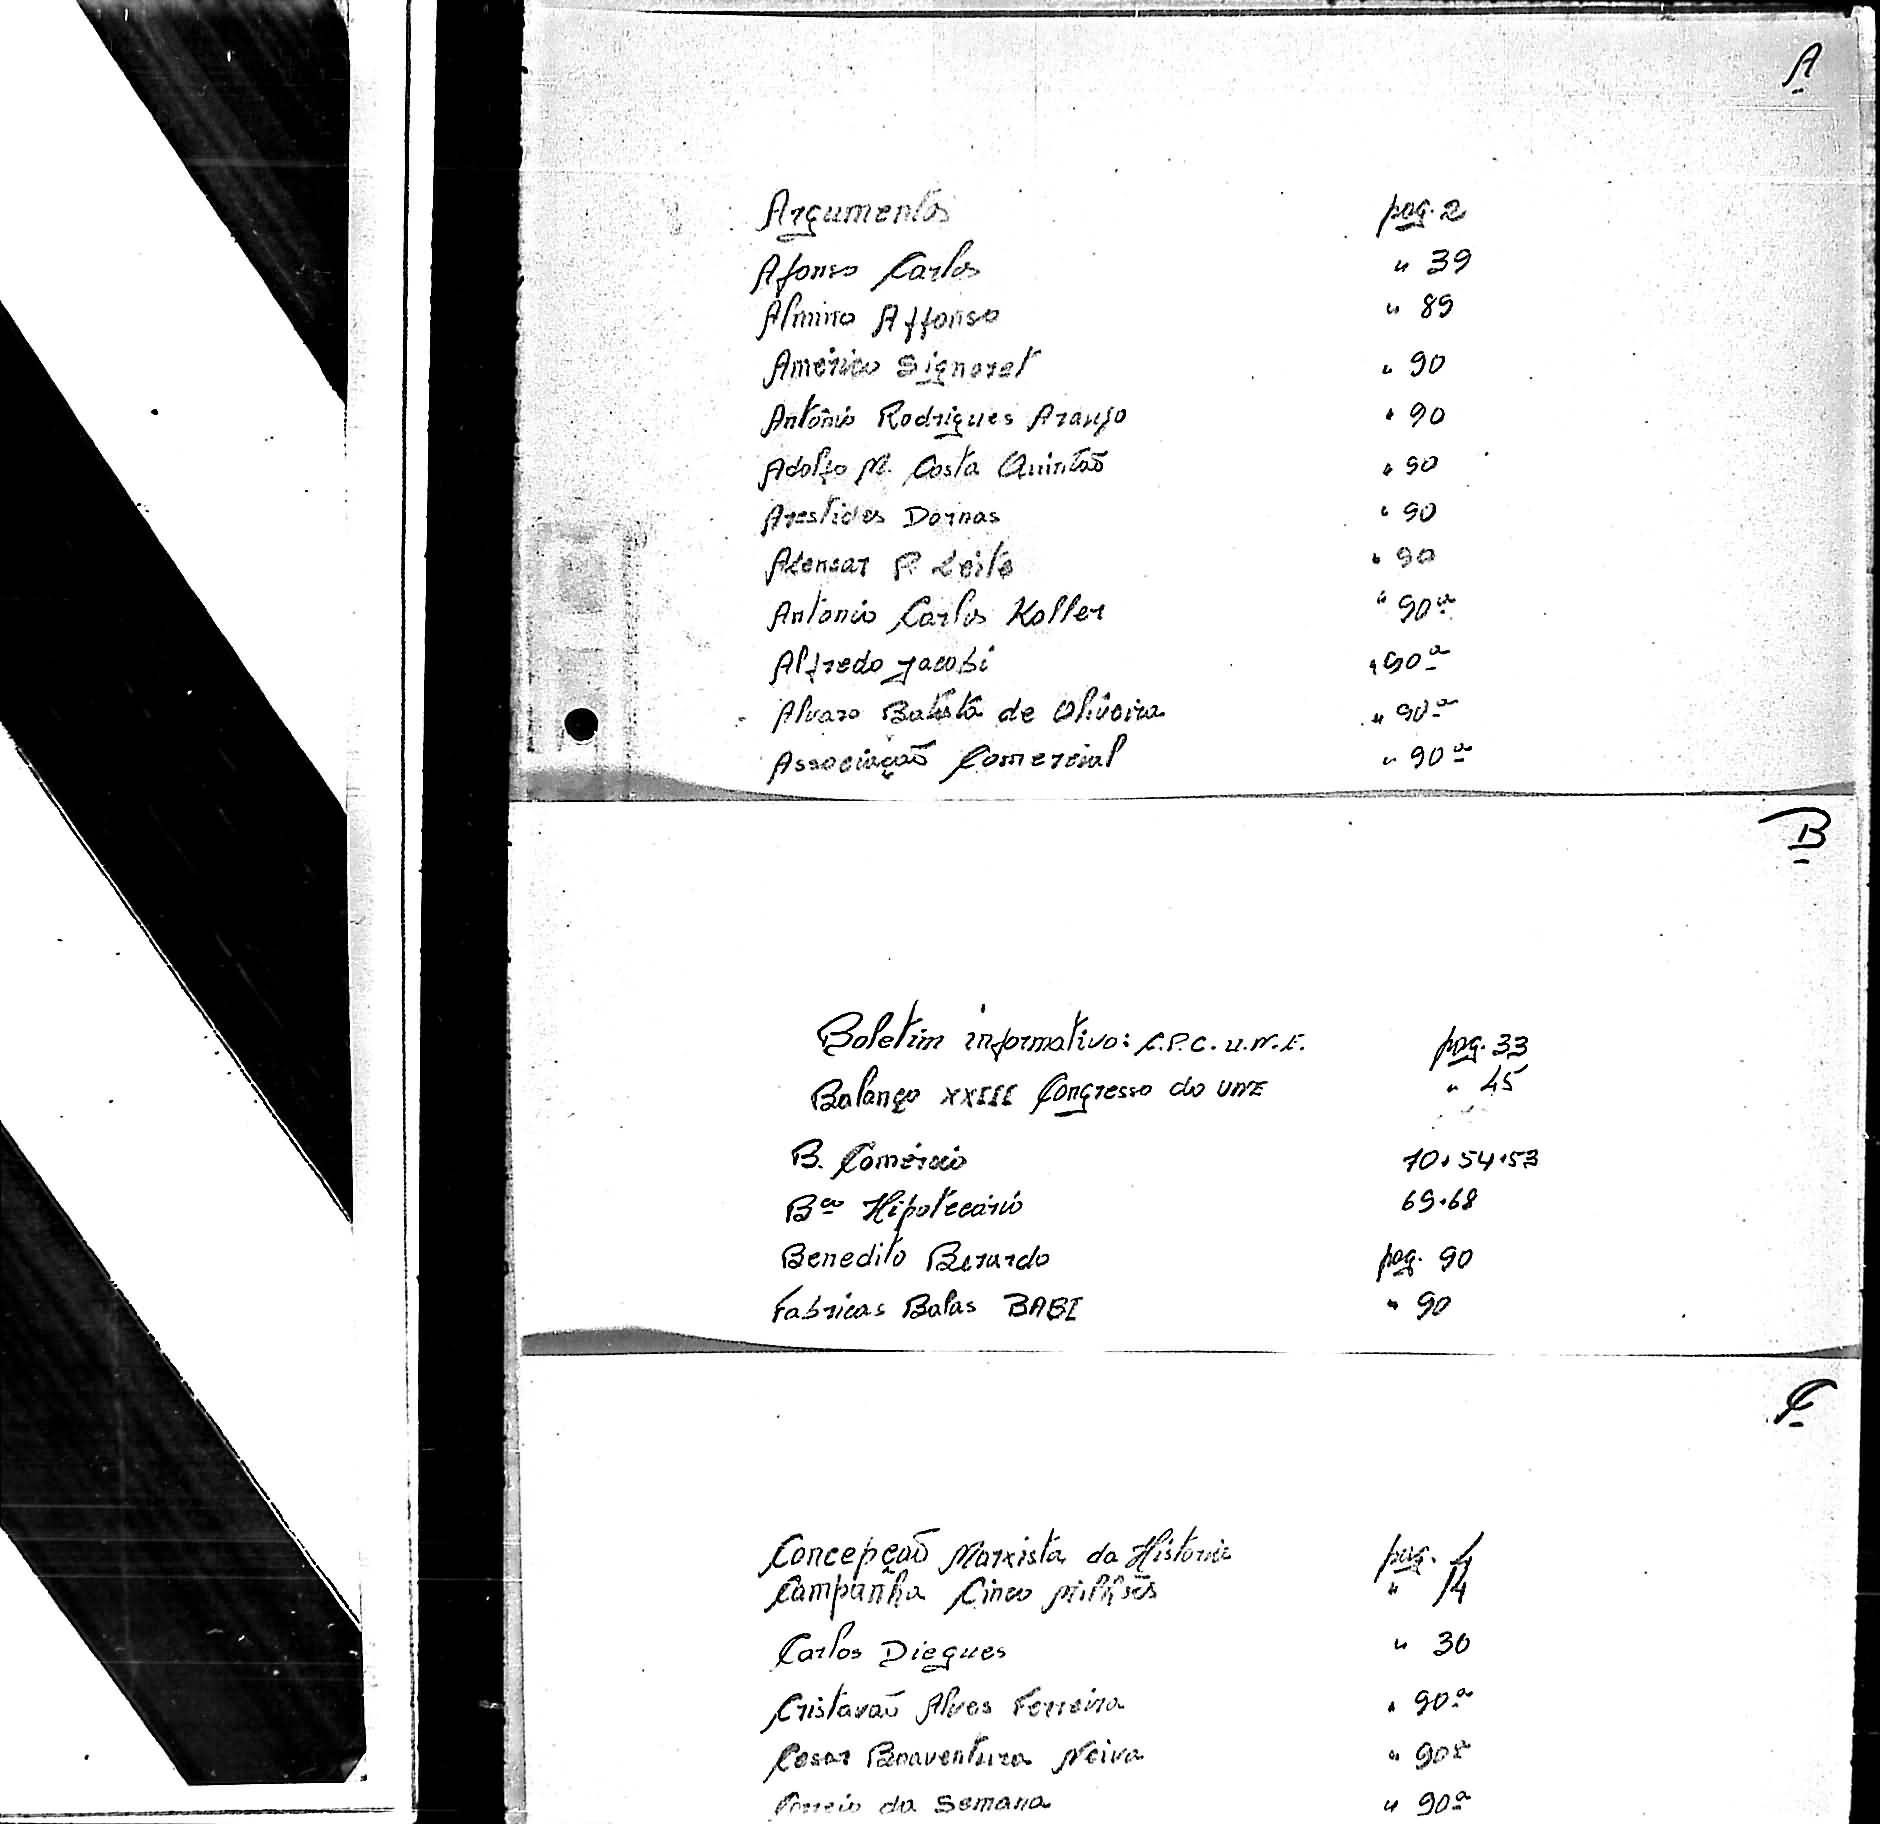 A
Argumentos pag. 2
Afonso Carlos " 39
Almino Affonso " 89
Américo Signoret " 90
Antônio Rodrigues Araujo " 90
Adolfo M. Costa Quintaõ " 90
Arestides Dornas " 90
P Leite " 90
Antonio Carlos Koller " 90ª
Alfredo Jacobi " 90ª
Alvaro Batista de Oliveira " 90ª
Associaçaõ Comercial " 90ª
B
Boletim informativo: C.P.C. U.N.E. pag. 33
Balanço XXIII Congresso do UNE " 45
B. Comércio 70.54.53
Bco Hipotecário 69.68
Benedito Berardo pag. 90
Fabricas Balas BABI " 90
C
Concepçaõ Marxista da Historia pag. 4
Campanha Cinco Milhões " 14
Carlos Diegues " 30
Cristavaõ Alves Ferreira " 90ª
Cesar Boaventura Neiva " 90ª
Correio da Semana " 90ª